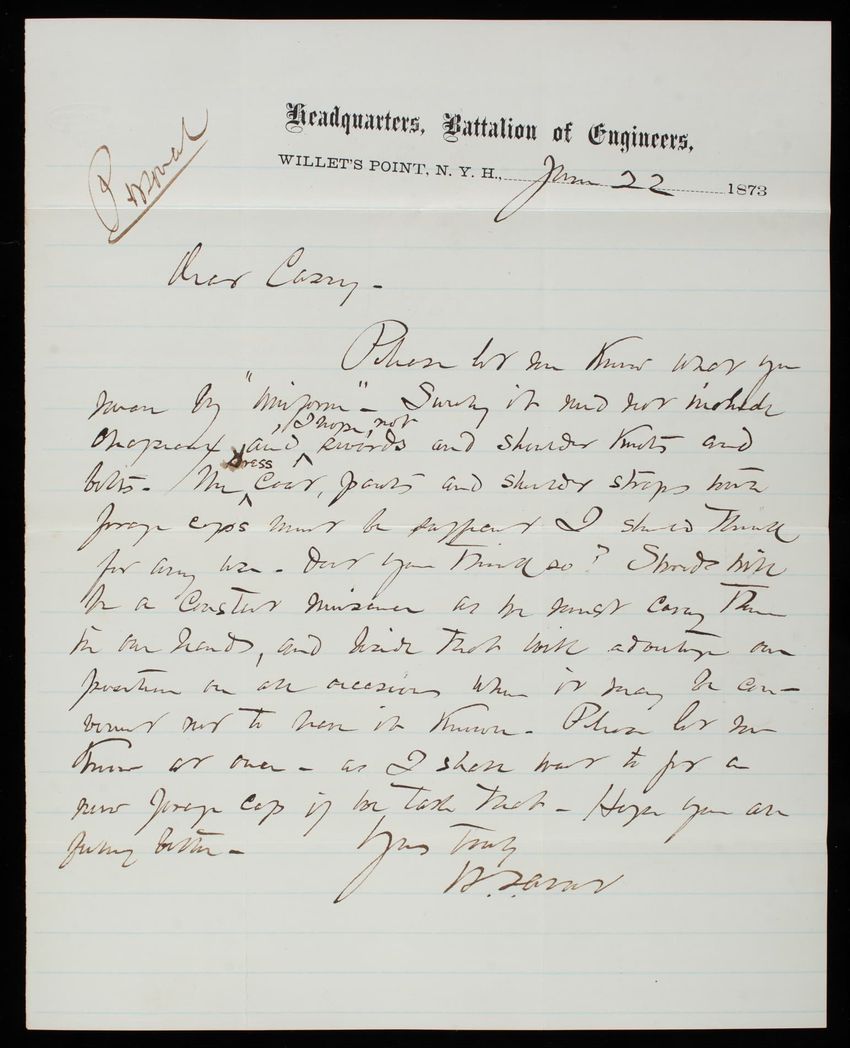 Headquarters, Battalion of Engineers,
WILLET'S POINT, N. Y. H., Jan 22 1873
Personal
Dear Casey -
Please let me know what you
mean by "uniform" - Surely it need not include
, I hope, not
chapeaux, and swords and shoulder knots and
dress
belts - The coat, pants and shoulder straps with
forage caps must be sufficient I should think
for any use - Don't you think so? Swords will
be a constant nuisance as we must carry them
in our hands, and beside that will advertise our
position on all occasions when it may be con-
venient not to have it known - Please let me
know at once - as I shall want to get a
new forage cap if we take that - Hope you are
feeling better -
Yours truly